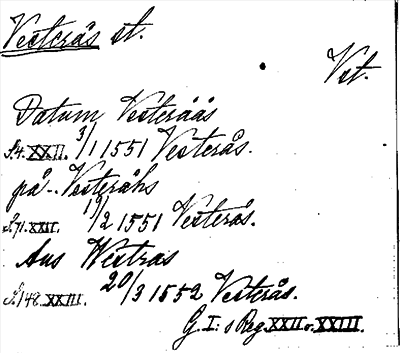 Vesterås st.
Vst.
Datum Vesteråås
S.4. XXII. 3/1 1551 Vesterås.
på - Vesteråhs
S.71. XXII. 19/2 1551 Vesterås.
Aus Westras
S.148. XXIII. 20/3 1552 Vesterås.
G. I: s Reg. XXII o. XXIII.